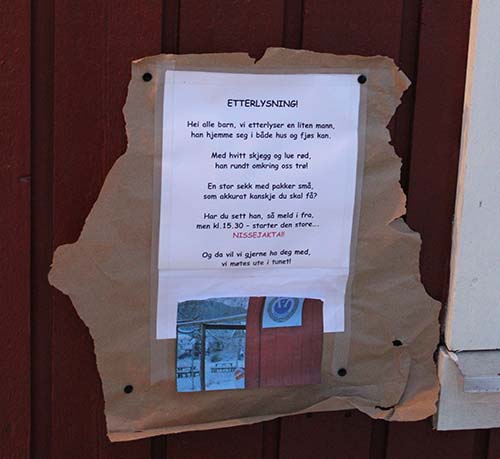 ETTERLYSNING!
Hei alle barn, vi etterlyser en liten mann,
han hjemme seg i både hus og fjøs kan.
Med hvitt skjegg og lue rød,
han rundt omkring oss trø!
En stor sekk med pakker små,
som akkurat kanskje du skal få?
Har du sett han, så meld i fra,
men kl.15.30 - starter den store....
NISSEJAKTA!!
Og da vil vi gjerne ha deg med,
vi møtes ute i tunet!